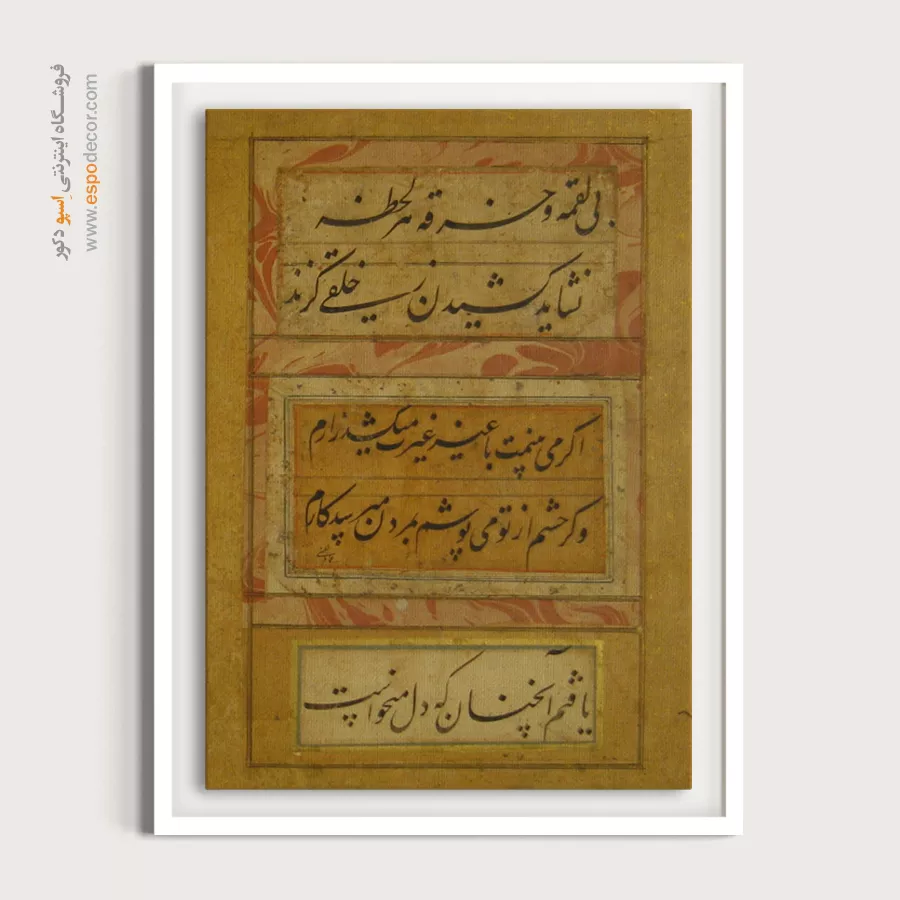 فروشگاه اینترنتی اِسپو دکور
www.espodecor.com
پی لقمه و خرقه هر لحظه
نشاید کشیدن ز خلقی گزند
اگر می بینمت با غیر غیرت میکشد زارم
وگر چشم از تو می پوشم بمردن میرسد کارم
یافتم آنچنان که دل میخواست